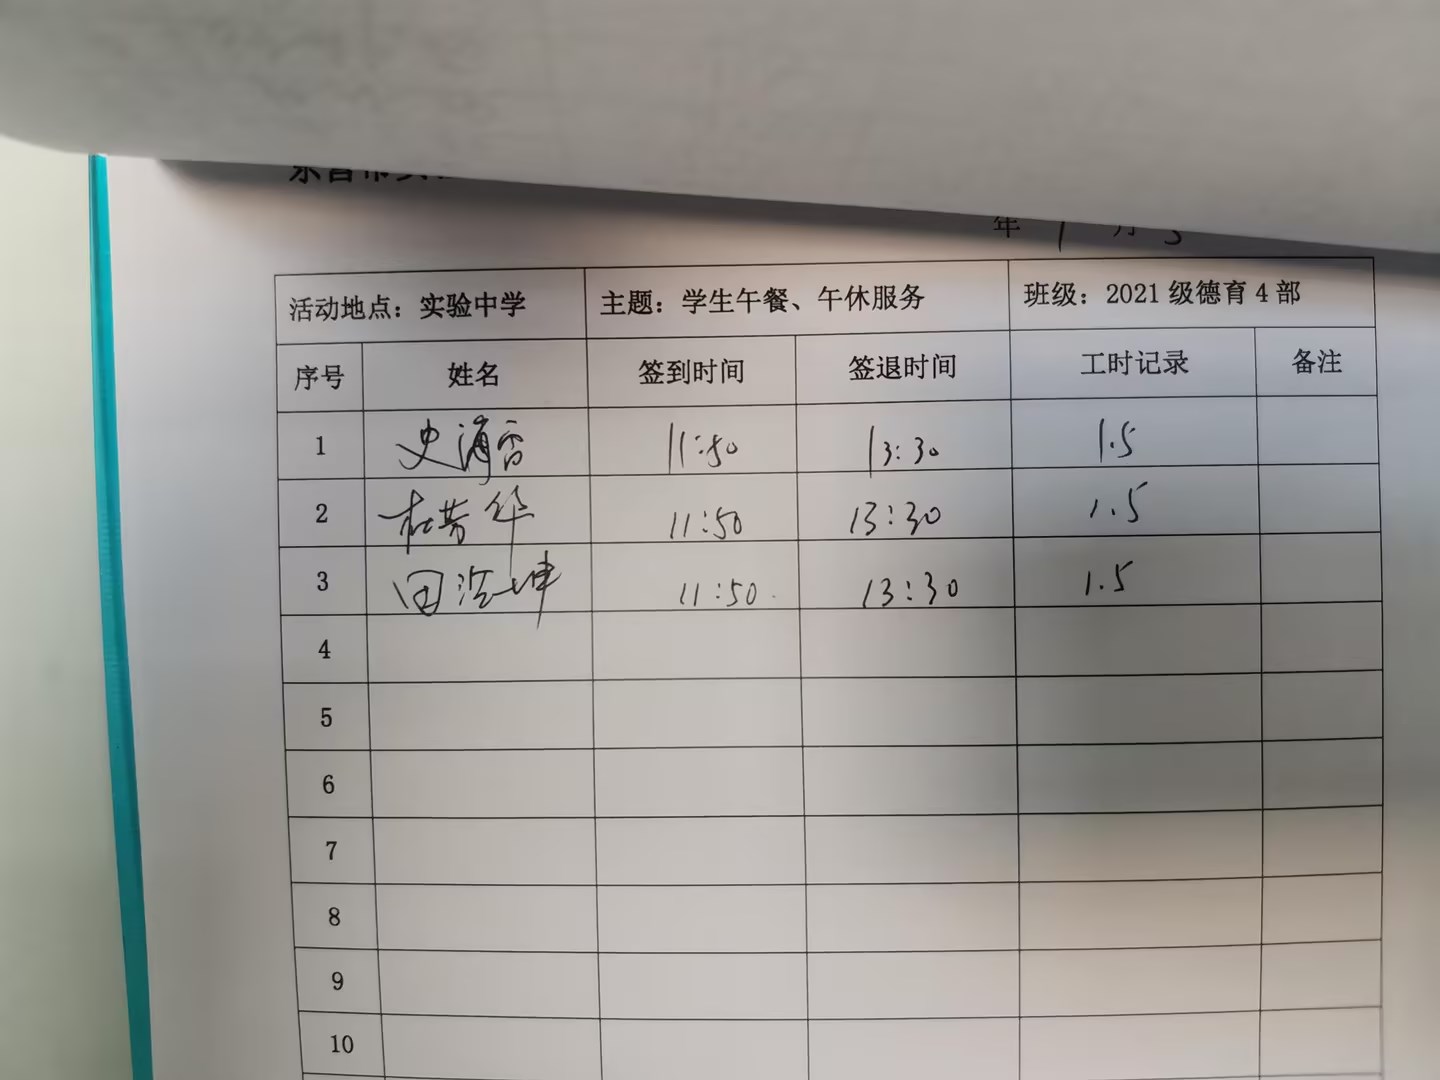 年 1 月 3
活动地点：实验中学 主题：学生午餐、午休服务 班级：2021级德育4部
序号 姓名 签到时间 签退时间 工时记录 备注
1 史 11:50 13:30 1.5
2 杜芳华 11:50 13:30 1.5
3 田浩坤 11:50 13:30 1.5
4
5
6
7
8
9
10